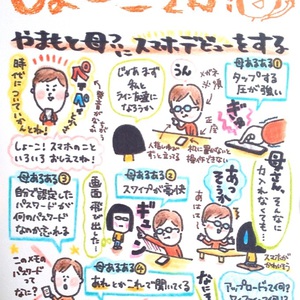 やまもと母ついにスマホデビューをする
時代に
ついていか
んとね!
ペーペー
じゃあまず
私と
ライン友達に
なろうか
うん
メガネ
外す
正座
母あるある①
タップする
圧が強い
ぎゅっ
しょーこ!スマホのこと
いろいろおしえてね!
人差し指で
ずっと立てる
私に置かないと
操作できない
母さん、
そんなに
力入れ
なくても…
母あるある③
自分で設定した
パスワードが
何のパスワード
なのか忘れる
母あるある②
スワイプが豪快
画面飛び出たー
ギューン
あっ
そう?
スマホが
かわいそう
このメモの
パスワード
ってなに?
母あるある④
あれとかこれで聞いてくる
アップロードって何?